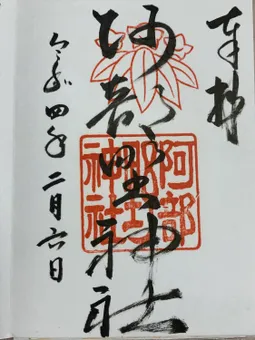 奉拝
阿部野神社
阿部野神社
令和四年二月六日